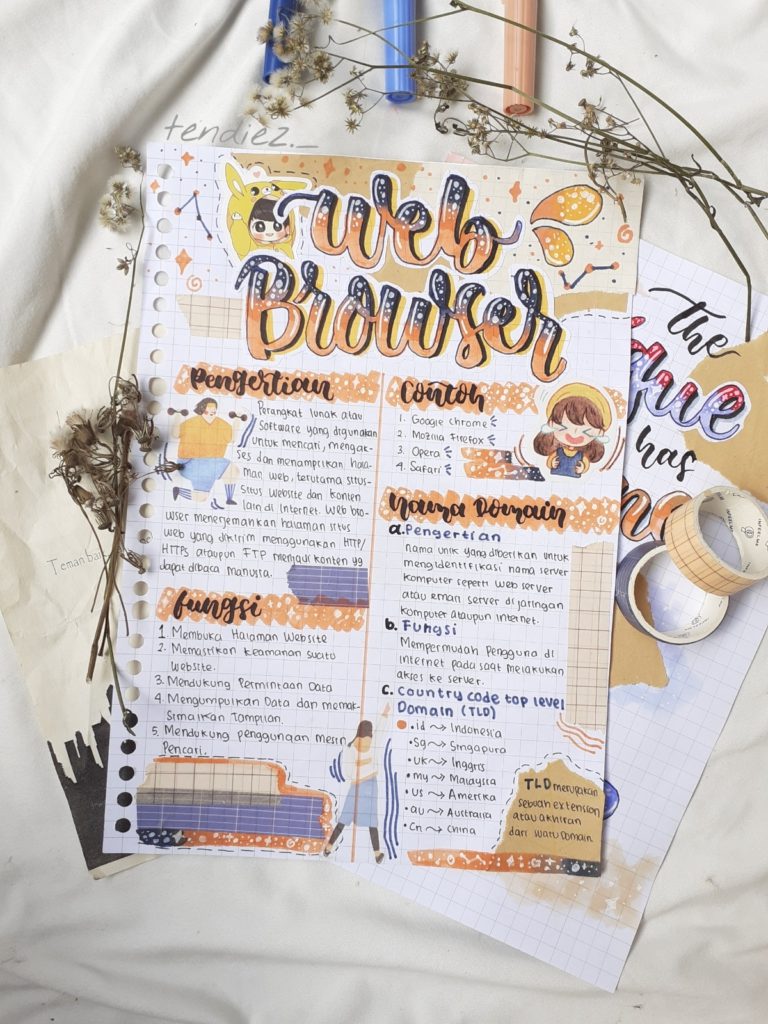 tendiez._
Web
Browser
Pengertian
Perangkat lunak atau
Software yang digunakan
untuk mencari, mengak-
ses dan menampilkan hala-
man web, terutama situs-
situs website dan konten
lain di Internet. Web bro-
wser menerjemahkan halaman situs
web yang dikirim menggunakan HTTP/
HTTPS ataupun FTP menjadi konten yg
dapat dibaca manusia.
Fungsi
1. Membuka Halaman Website
2. Memastikan Keamanan suatu
Website.
3. Mendukung Permintaan Data
4. Mengumpulkan Data dan memak-
simalkan Tampilan.
5. Mendukung penggunaan mesin
Pencari.
Contoh
1. Google Chrome
2. Mozilla Firefox
3. Opera
4. Safari
Nama Domain
a. Pengertian
nama unik yang diberikan untuk
mengidentifikasi nama server
komputer seperti web server
atau email server di jaringan
komputer ataupun internet.
b. Fungsi
Mempermudah Pengguna di
Internet pada saat melakukan
akses ke server.
C. Country code top level
Domain (TLD)
.id → Indonesia
.sg → Singapura
.uk → Inggris
.my → Malaysia
.us → Amerika
.au → Australia
.cn → China
TLD merupakan
sebuah extension
atau akhiran
dari suatu Domain
the
que
has
Teman ba